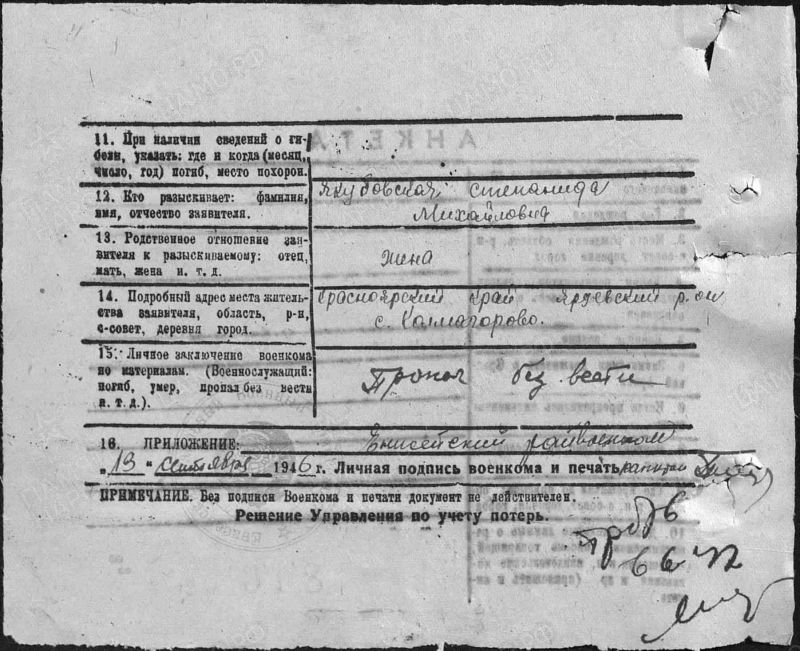 11. При наличии сведений о ги-
бели, указать: где и когда (месяц,
число, год) погиб, место похорон.
12. Кто разыскивает: фамилия,
имя, отчество заявителя.
Якубовская Степанида
Михайловна
13. Родственное отношение зая-
вителя к разыскиваемому: отец,
мать, жена и. т. д.
жена
14. Подробный адрес места житель-
ства заявителя, область, р-н,
с-совет, деревня город.
Красноярский край Ярцевский р-он
с. Колмагорово.
15. Личное заключение военкома
по материалам. (Военнослужащий:
погиб, умер, пропал без вести
и. т. д.).
Пропал без вести
16. ПРИЛОЖЕНИЕ:
Енисейский райвоенком
„13" сентября 1946 г. Личная подпись военкома и печать капитан
ПРИМЕЧАНИЕ. Без подписи Военкома и печати документ не действителен.
Решение Управления по учету потерь.
АНКЕТА